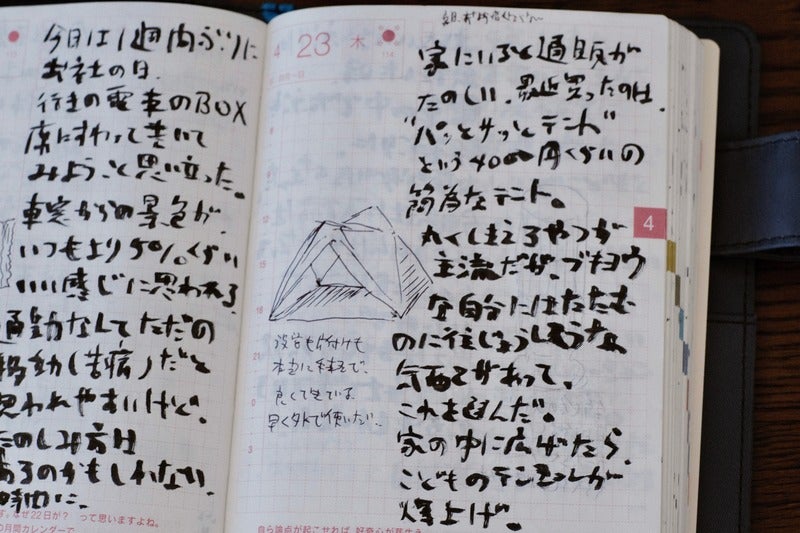 今日は1週間ぶりに
お社の日.
行きの電車のBOX
席にすわって書いて
みようと思い立った。
車窓からの景色が、
いつもより50%くらい
いい感じに思われる.
通勤なんてただの
移動(苦痛)だと
思われやすいけど。
たのしみ方は
あるのかもしれない.
時間に.
なぜ22日が? って思いますよね。
月間カレンダーで
4 23 木
4
設営も片付けも
本当に簡単で、
良くできている.
早く外で使いたい.
自ら論点が起こせれば、好奇心が芽生え
家にいると通販が
たのしい. 最近買ったのは.
"パッとサッとテント"
という4000円くらいの
簡易なテント。
丸くしまえるやつが
主流だが、ブキヨウ
な自分にはたたむ
のに往じょうしそうな
気配とがあって、
これを選んだ。
家の中に広げたら.
こどものテンションが
爆上げ。